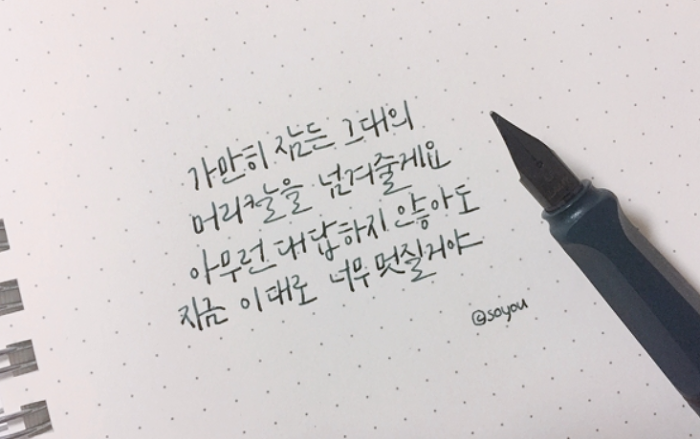 가만히 잠든 그대의
머리카락을 넘겨줄게요
아무런 대답하지 않아도
지금 이대로 너무 멋질거야
©soyou